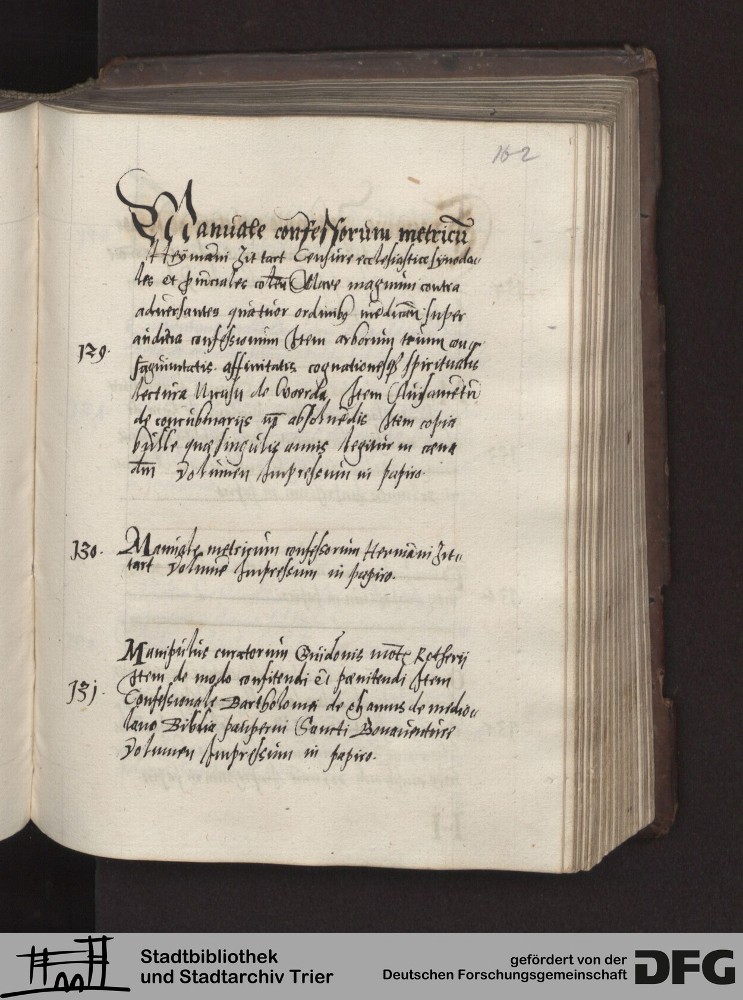 162
Manuale confessorum metricū
Hermāni Zittart Censure ecclesiastice synoda-
les et puiciales Clave magnum contra
adversantes quatuor ordinibꝫ super
audiēn confessionum Item arborum trium con-
129. saguinitatis affinitatis cognationesqꝫ spiritualis
lectura de Woerda, Item Avisamētū
de concubinarijs nō absolvēdis Item copia
bulle que singulis annis legitur in cena
dni Volumen Impressum in papiro.
130. Manuale metricum confessorum Hermāni Zit-
tart Volumē Impressum in papiro.
Manipulus curatorum Guidonis Rotherij
Item de modo confitendi et penitendi Item
131. Confessionale Bartholomei de chamis de medio-
lano Biblia pauperum Sancti Bonaventure
Volumen Impressum in papiro.
Stadtbibliothek
und Stadtarchiv Trier
gefördert von der
Deutschen Forschungsgemeinschaft
DFG